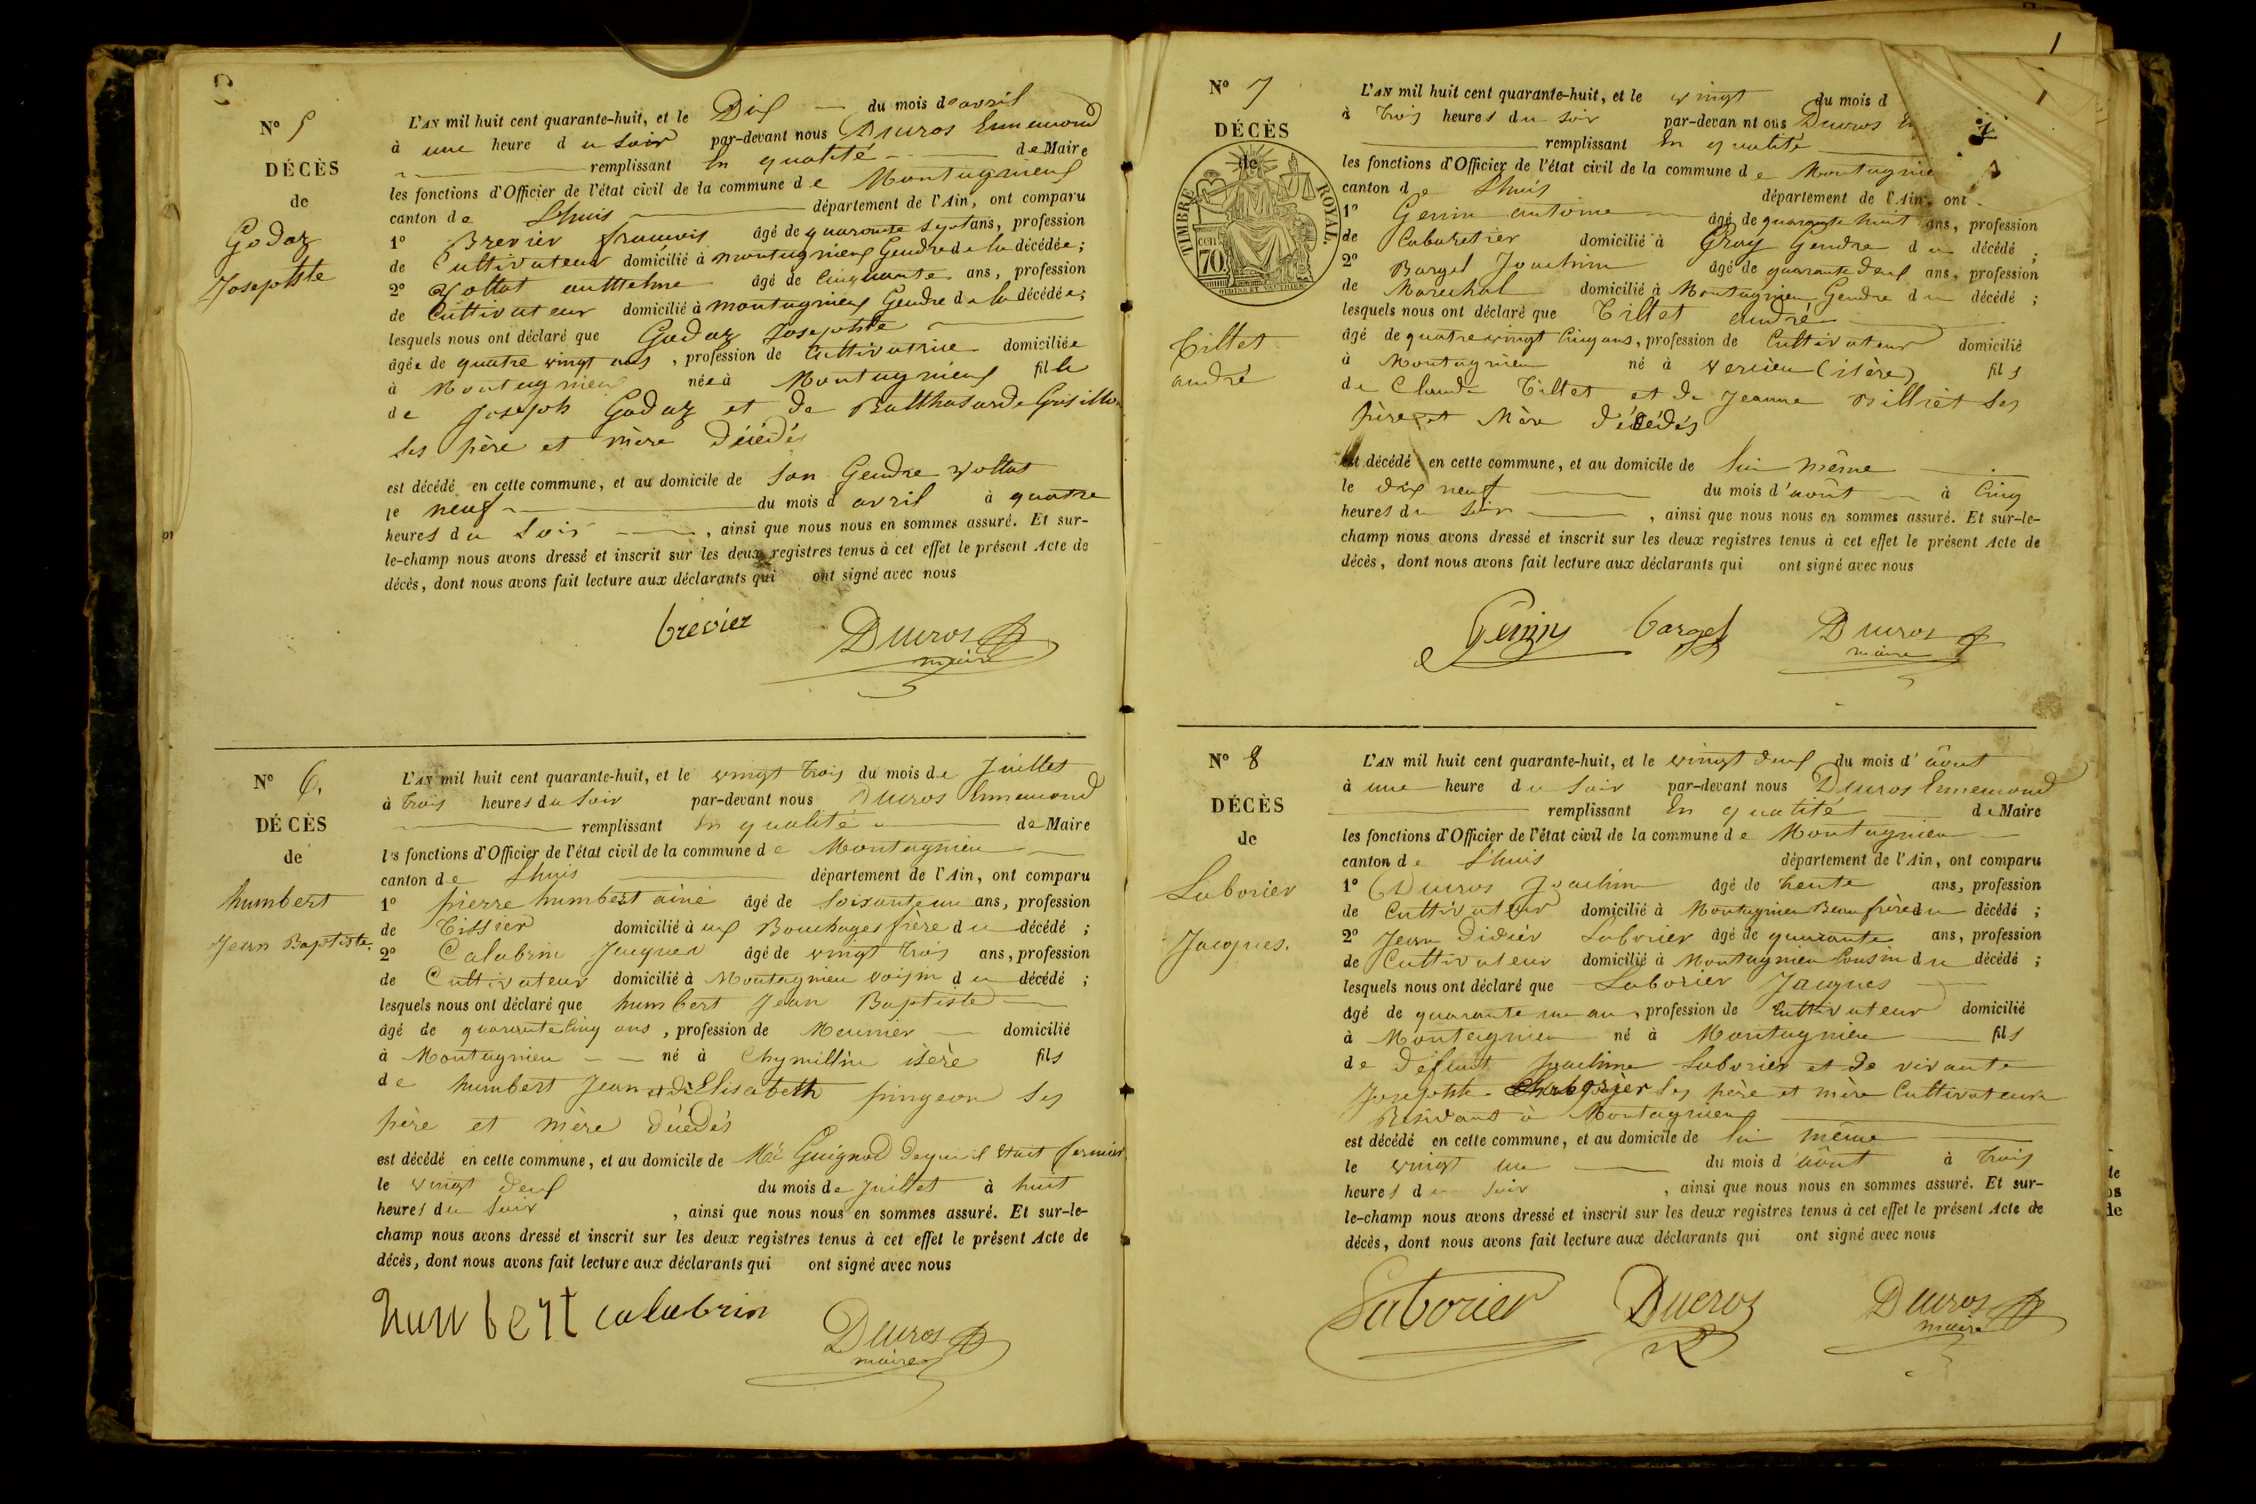 N° 5
DÉCÈS
de
Godaz
Josephte
L'AN mil huit cent quarante-huit, et le Dix du mois d'avril
à une heure du soir par-devant nous Ducros Ennemond
remplissant En qualité de Maire
les fonctions d'Officier de l'état civil de la commune de Montagnieux
canton de Lhuis département de l'Ain, ont comparu
1° Brevier francois âgé de quarante sept ans, profession
de Cultivateur domicilié à Montagnieux Gendre de la décédée;
2° Vottat anthelme âgé de Cinquante ans, profession
de Cultivateur domicilié à Montagnieux Gendre de la décédée;
lesquels nous ont déclaré que Godaz Josephte
âgée de quatre vingt ans, profession de Cultivatrice domiciliée
à Montagnieux née à Montagnieux fille
de Joseph Godaz et de Balthasarde
ses père et mère décédés
est décédé en cette commune, et au domicile de son Gendre Vottat
le neuf du mois d'avril à quatre
heures du soir, ainsi que nous nous en sommes assuré. Et sur-
le-champ nous avons dressé et inscrit sur les deux registres tenus à cet effet le présent Acte de
décès, dont nous avons fait lecture aux déclarants qui ont signé avec nous
brevier Ducros
maire
N° 6.
DÉCÈS
de
humbert
Jean Baptiste.
L'AN mil huit cent quarante-huit, et le vingt trois du mois de Juillet
à trois heures du soir par-devant nous Ducros Ennemond
remplissant En qualité de Maire
les fonctions d'Officier de l'état civil de la commune de Montagnieu
canton de Lhuis département de l'Ain, ont comparu
1° pierre humbert ainé âgé de soixante un ans, profession
de Tissier domicilié à aux Bouchages frère du décédé;
2° Calabrin Jacques âgé de vingt trois ans, profession
de Cultivateur domicilié à Montagnieu voisin du décédé;
lesquels nous ont déclaré que humbert Jean Baptiste
âgé de quarante Cinq ans, profession de Meunier domicilié
à Montagnieu né à Chymillin isère fils
de humbert Jean et d'Elisabeth pingeon ses
père et mère décédés
est décédé en cette commune, et au domicile de Mr Guignod dequi il était fermier
le vingt deux du mois de Juillet à huit
heures du soir, ainsi que nous nous en sommes assuré. Et sur-le-
champ nous avons dressé et inscrit sur les deux registres tenus à cet effet le présent Acte de
décès, dont nous avons fait lecture aux déclarants qui ont signé avec nous
humbert calabrin Ducros
maire
N° 7
DÉCÈS
de
TIMBRE ROYAL.
cen
70
Tillet
andré
L'AN mil huit cent quarante-huit, et le vingt du mois d
à trois heures du soir par-devan nt ous Ducros
remplissant En qualité
les fonctions d'Officier de l'état civil de la commune de Montagnie
canton de Lhuis département de l'Ain, ont
1° Genin antoine âgé de quarante huit ans, profession
de Cabaretier domicilié à Groy Gendre du décédé;
2° Bargel Joachim âgé de quarante deux ans, profession
de Marechal domicilié à Montagnieu Gendre du décédé;
lesquels nous ont déclaré que Tillet andré
âgé de quatrevingt Cinq ans, profession de Cultivateur domicilié
à Montagnieu né à Vercieu (isère) fils
de Claude Tillet et de Jeanne Billiet ses
père et Mère décédés
est décédé en cette commune, et au domicile de lui même
le dix neuf du mois d'août à Cinq
heures du soir, ainsi que nous nous en sommes assuré. Et sur-le-
champ nous avons dressé et inscrit sur les deux registres tenus à cet effet le présent Acte de
décès, dont nous avons fait lecture aux déclarants qui ont signé avec nous
bargel Ducros
maire
N° 8
DÉCÈS
de
Laborier
Jacques.
L'AN mil huit cent quarante-huit, et le vingt deux du mois d'août
à une heure du soir par-devant nous Ducros Ennemond
remplissant En qualité de Maire
les fonctions d'Officier de l'état civil de la commune de Montagnieu
canton de Lhuis département de l'Ain, ont comparu
1° Ducros Joachim âgé de trente ans, profession
de Cultivateur domicilié à Montagnieu Beaufrère du décédé;
2° Jean Didier Laborier âgé de quarante ans, profession
de Cultivateur domicilié à Montagnieu Cousin du décédé;
lesquels nous ont déclaré que Laborier Jacques
âgé de quarante un an, profession de Cultivateur domicilié
à Montagnieu né à Montagnieu fils
de défunt Joachim Laborier et de vivante
Josephte ses père et mère Cultivateurs
Résidant à Montagnieux
est décédé en cette commune, et au domicile de lui même
le vingt un du mois d'août à trois
heures du soir, ainsi que nous nous en sommes assuré. Et sur-
le-champ nous avons dressé et inscrit sur les deux registres tenus à cet effet le présent Acte de
décès, dont nous avons fait lecture aux déclarants qui ont signé avec nous
Laborier Ducros Ducros
maire